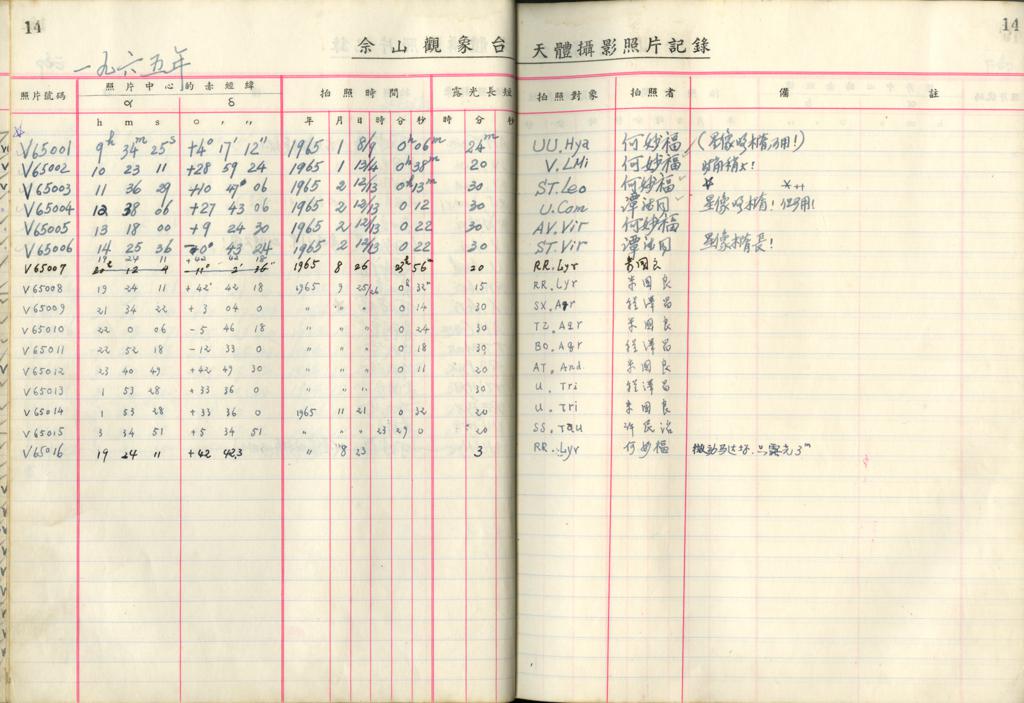 14 14
佘山觀象台 天體攝影照片記錄
一九六五年
照片號碼 照片中心的赤經緯 拍照時間 露光長短 拍照對象 拍照者 備 註
α δ
h m s o , ,, 年 月 日 時 分 秒 時 分 秒
V65001 9h 34m 25s +4° 17' 12" 1965 1 8/9 0h 06m 24m UU.Hya 何妙福 (星像 稍 可用!)
V65002 10 23 11 +28 59 24 1965 1 13/4 0h 38m 20 V.LMi 何妙福
V65003 11 36 29 +10 47 06 1965 2 12/13 0h 13m 30 ST.Leo 何妙福
V65004 12 38 06 +27 43 06 1965 2 12/13 0 12 30 U.Com 星像 稍
V65005 13 18 00 +9 24 30 1965 2 12/13 0 22 30 AV.Vir 何妙福
V65006 14 25 36 -0° 43 24 1965 2 12/13 0 22 30 ST.Vir 星像稍長!
19 24 11 +42 42 18
V65007 1965 8 26 23h 56m 20 RR.Lyr
V65008 19 24 11 +42° 42 18 1965 9 25/26 0h 32m 15 RR.Lyr 朱國良
V65009 21 34 22 +3 04 0 " " " 0 14 30 SX.Aqr 程澤昌
V65010 22 0 06 -5 46 18 " " " 0 24 30 TZ.Aqr 朱國良
V65011 22 52 18 -12 33 0 " " " 0 18 30 BO.Aqr 程澤昌
V65012 23 40 49 +42 49 30 " " " 0 11 20 AT.And. 朱國良
V65013 1 53 28 +33 36 0 " " " 30 U.Tri 程澤昌
V65014 1 53 28 +33 36 0 1965 11 21 0 32 20 U.Tri 朱國良
V65015 3 34 51 +5 34 51 " " " 23 29 0 20 SS.Tau 許民治
V65016 19 24 11 +42 42.3 " 8 23 3 RR.Lyr 何妙福 露光3m